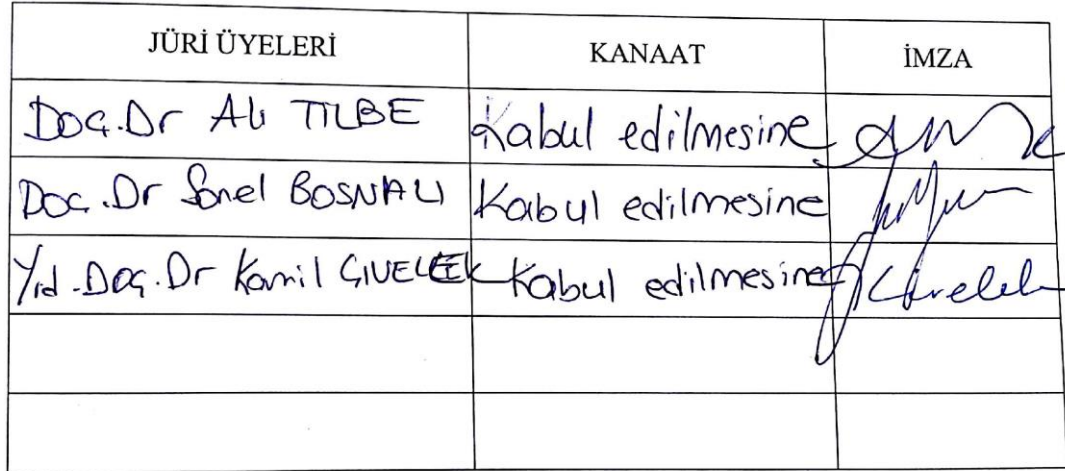 JÜRİ ÜYELERİ KANAAT İMZA
Doç.Dr Ali TİLBE Kabul edilmesine
Doç.Dr Sonel BOSNALI Kabul edilmesine
Yrd.Doç.Dr Kamil CİVELEK Kabul edilmesine